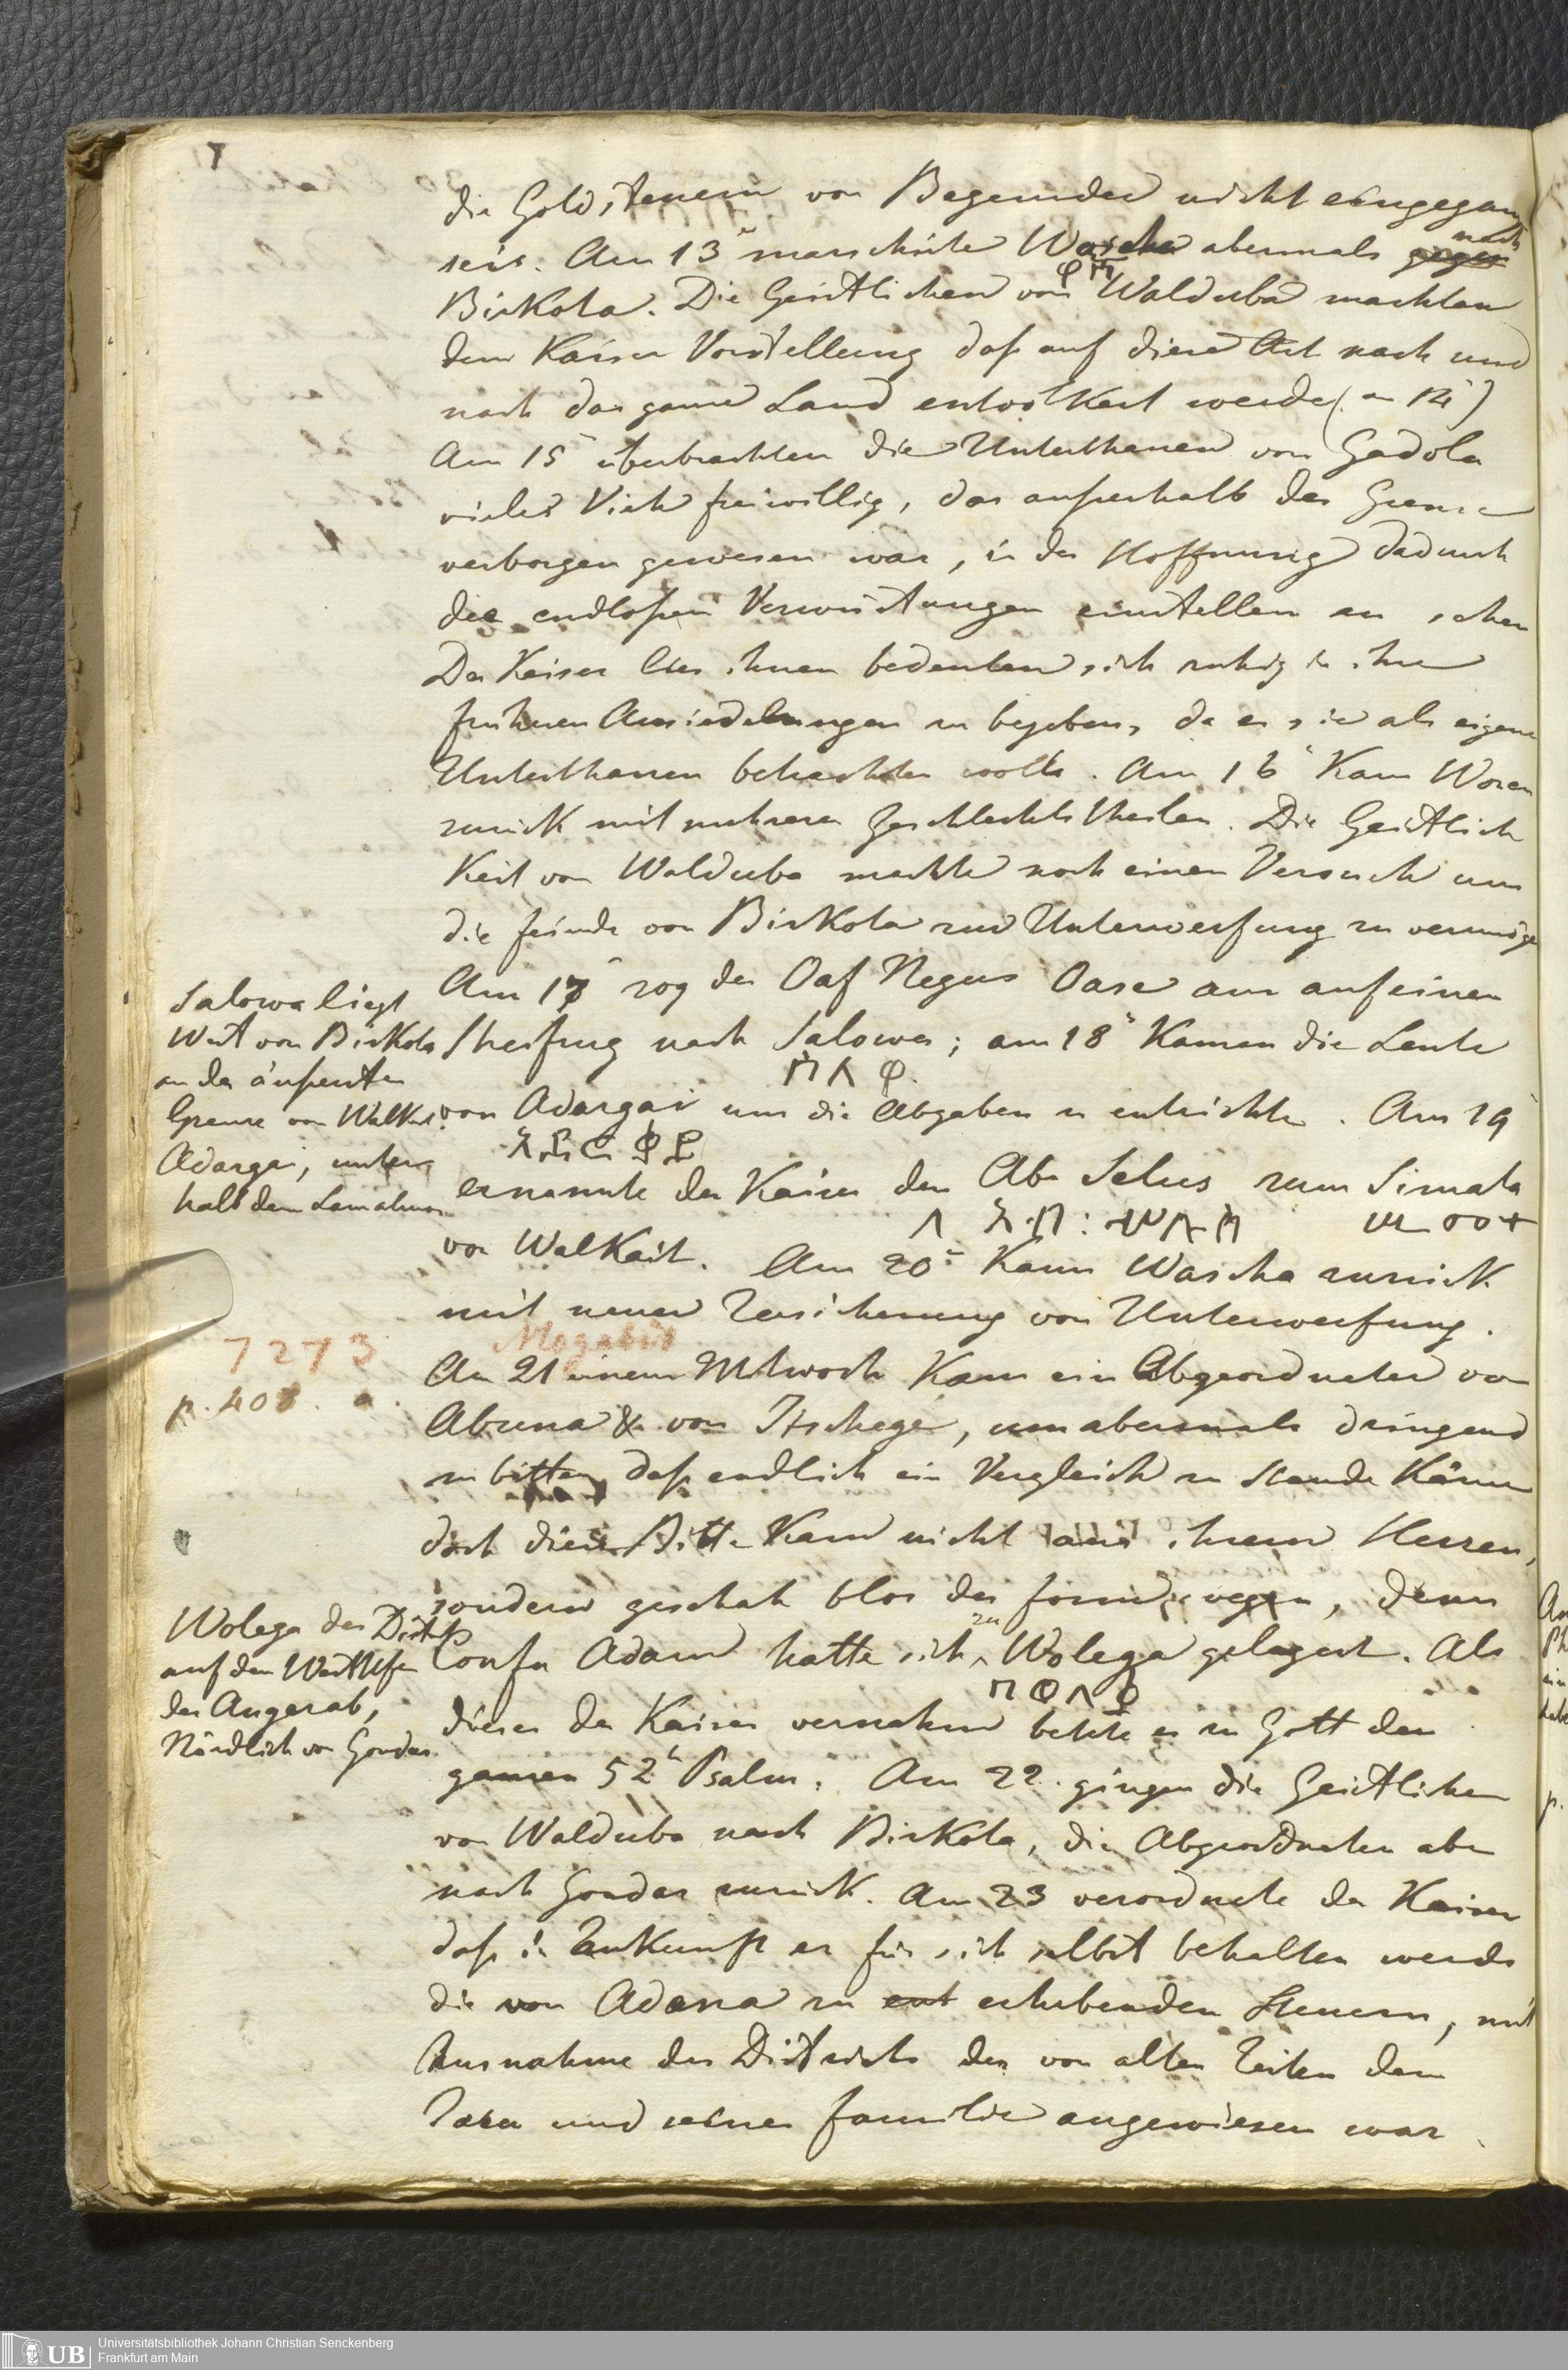 7
die Goldsteuern von Begemder nicht eingegang
seis. Am 13ⁿ marschirte Wascha abermals gegen nach
Birkota. Die Geistlichen von Walduba machten
dem Kaiser Vorstellung daß auf diese Art nach und
nach das ganze Land entvölkert werde (am 14ⁿ)
Am 15ⁿ überbrachten die Unterthanen von Gadola
vieles Vieh freiwillig, das außerhalb der Grenze
verborgen gewesen war, in der Hoffnung dadurch
die endlosen Verwüstungen einstellen zu sehen
Der Kaiser lies ihnen bedeuten sich ruhig in ihre
früheren Ansiedelungen zu begeben, da er sie als eigene
Unterthanen betrachten wolle. Am 16ⁿ kam Woren
zurück mit mehrern Geschlechtstheilen. Die Geistlich
keit von Walduba machte noch einen Versuch um
die feinde von Birkota zur Unterwerfung zu vermöge
Am 17ⁿ zog der Oaf Negus Oase aus auf einen
Streifzug nach Salowa; am 18ⁿ kamen die Leute
von Adargai um die Abgaben zu entrichten. Am 19
ernannte der Kaiser den Aba Selus zum Simata
von Walkait. Am 20ⁿ kam Wascha zurück
mit neuer Versicherung von Unterwerfung.
Magabit
Am 21 einem Mitwoch kam ein Abgeordneter von
Abuna & von Itschege, um abermals dringend
zu bitten, daß endlich ein Vergleich zu Stande käme
doch diese Bitte kam nicht aus ihrem Herzen,
sondern geschah blos der form wegen, denn
Confu Adam hatte sich zu Wolega gelagert. Als
dieses der Kaiser vernahm betete er zu Gott den
ganzen 52ⁿ Psalm. Am 22. gingen die Geistlichen
von Walduba nach Birkota, die Abgeordneten aber
nach Gondar zurück. Am 23 verordnete der Kaiser
daß in Zukunft er für sich selbst behalten werde
die von Adana zu ent erhebenden Steuern, mit
Ausnahme des Districts der von alten Zeiten dem
und seiner familie angewiesen war
Salowa liegt
West von Birkota
an der äußersten
Grenze von Walkait.
Adargai, unter
halb dem Lamalmon
7273
p. 408. a.
Wolega der District
auf dem Westufer
des Angerab,
Nördlich von Gondar.
UB Universitätsbibliothek Johann Christian Senckenberg
Frankfurt am Main